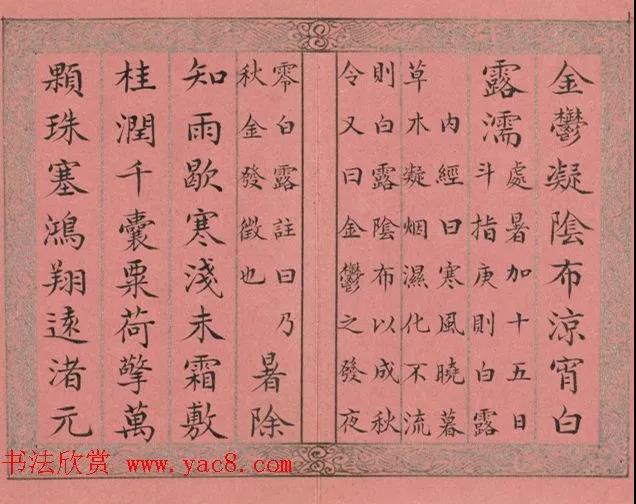 金鬱凝陰布涼宵白
露濡
處暑加十五日
斗指庚則白露
內經曰寒風曉暮
草木凝烟濕化不流
則白露陰布以成秋
令又曰金鬱之發夜
零白露註曰乃
秋金發徵也
暑除
知雨歇寒淺未霜敷
桂潤千囊粟荷擎萬
顆珠塞鴻翔遠渚元
书法欣赏 www.yac8.com